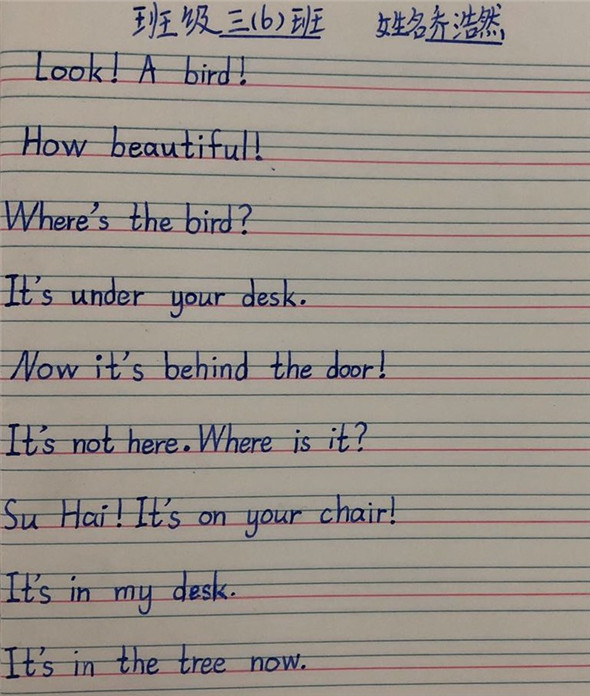 班级三(6)班 姓名乔浩然
Look! A bird!
How beautiful!
Where's the bird?
It's under your desk.
Now it's behind the door!
It's not here. Where is it?
Su Hai! It's on your chair!
It's in my desk.
It's in the tree now.